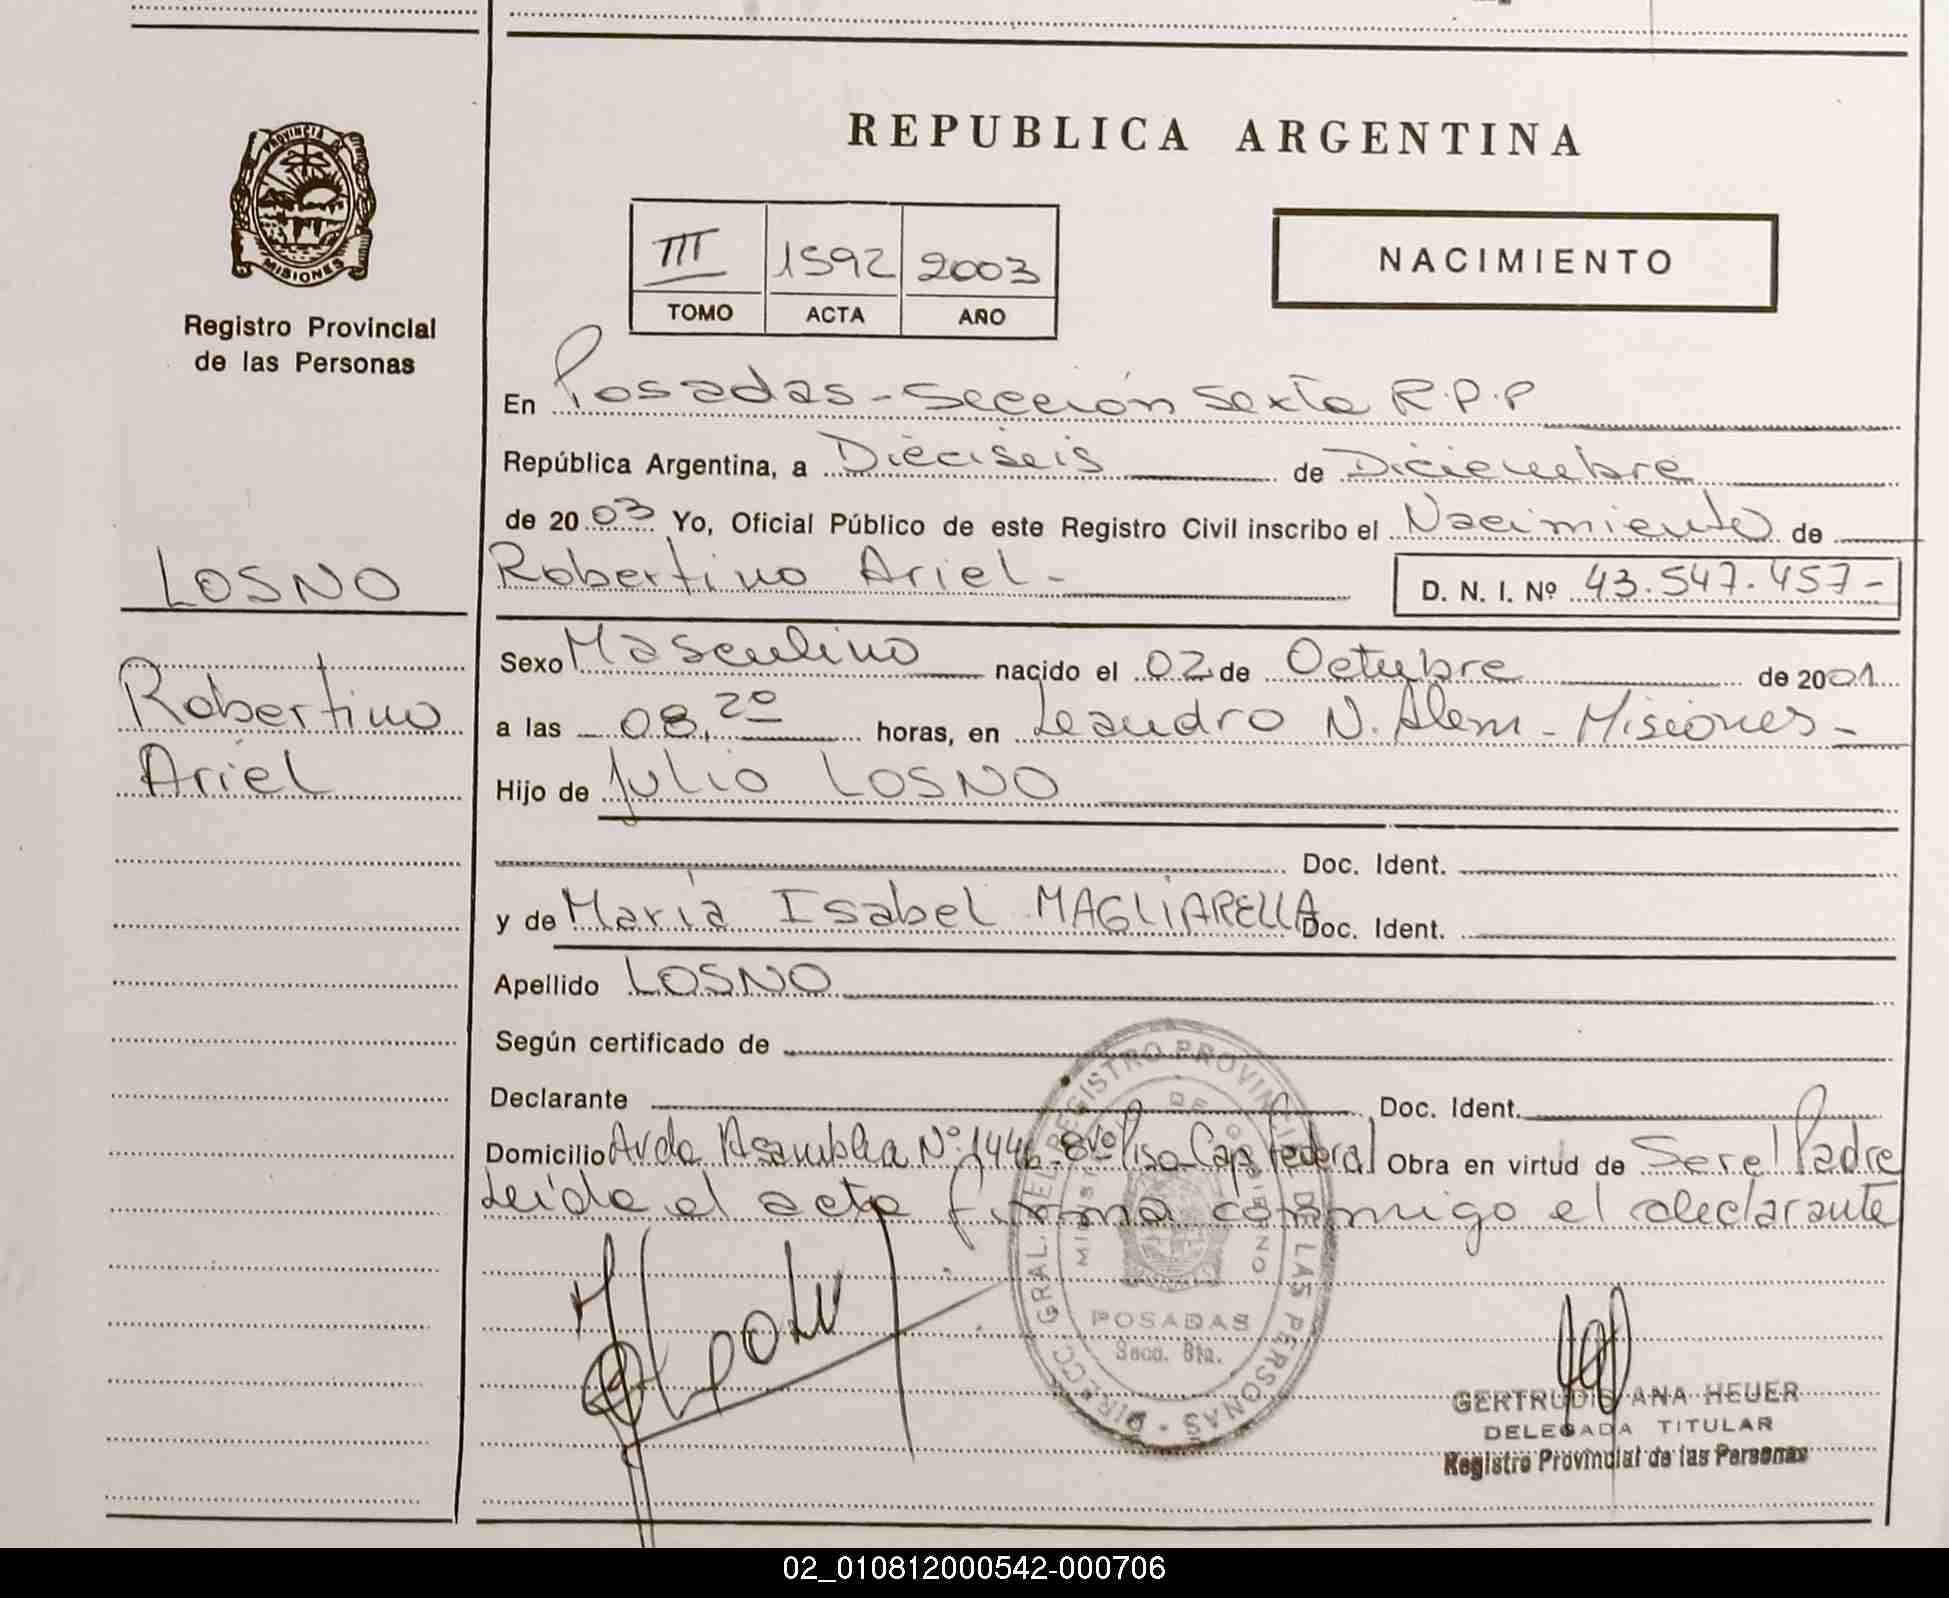 REPUBLICA ARGENTINA
PROVINCIA DE
MISIONES
Registro Provincial
de las Personas
III 1592 2003
TOMO ACTA AÑO
NACIMIENTO
En Posadas - Sección Sexta R.P.P
República Argentina, a Dieciseis de Diciembre
de 2003 Yo, Oficial Público de este Registro Civil inscribo el Nacimiento de
LOSNO
Robertino Ariel -
D. N. I. Nº 43.547.457-
Robertino
Ariel
Sexo Masculino nacido el 02 de Octubre de 2001
a las 08,20 horas, en Leandro N. Alem - Misiones -
Hijo de Julio LOSNO
Doc. Ident.
y de María Isabel MAGLIARELLA Doc. Ident.
Apellido LOSNO
Según certificado de
Declarante Doc. Ident.
Domicilio Avda Asamblea Nº 1446 - 8vo Piso - Cap federal Obra en virtud de Ser el Padre
Leída el acta firma conmigo el declarante
DIRECC. GRAL. DEL REGISTRO PROVINCIAL DE LAS PERSONAS
POSADAS
Secc. 6ta.
GERTRUDIS ANA HEUER
DELEGADA TITULAR
Registro Provincial de las Personas
02_010812000542-000706